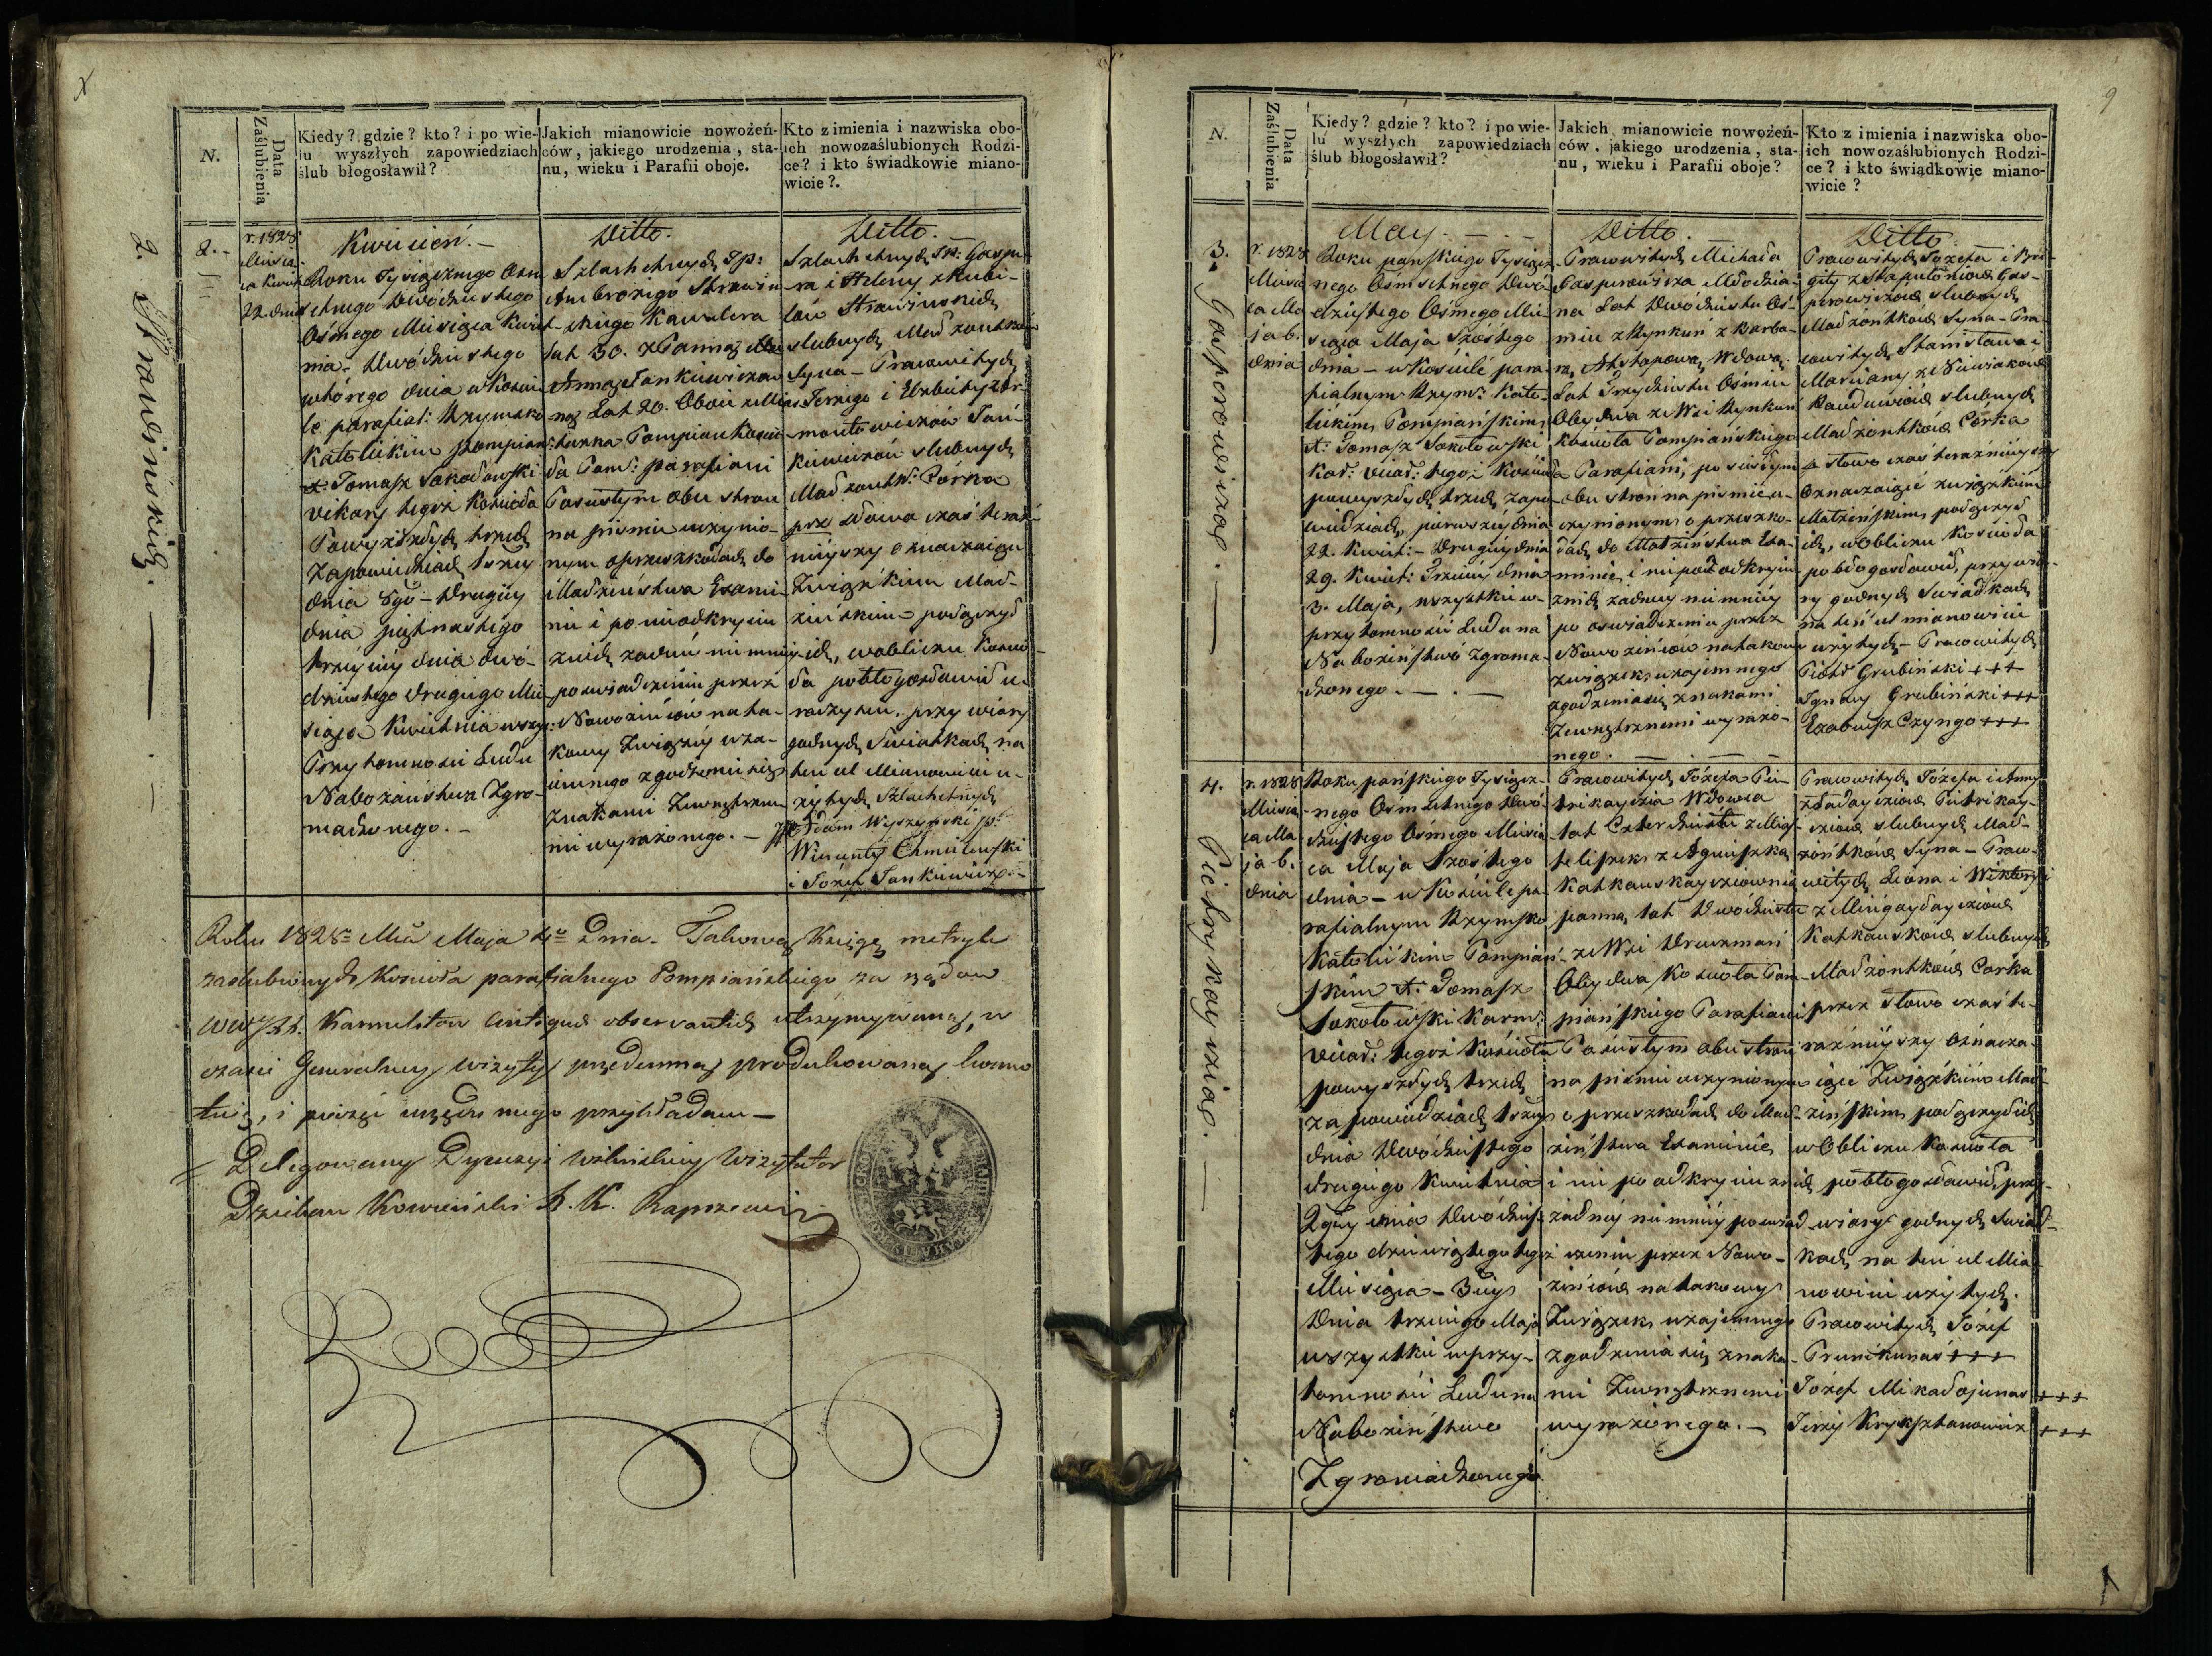 N.
Data Zaślubienia
Kiedy? gdzie? kto? i po wie-
lu wyszłych zapowiedziach
ślub błogosławił?
Jakich mianowicie nowożeń-
ców, jakiego urodzenia, sta-
nu, wieku i Parafii oboje.
Kto z imienia i nazwiska obo-
ich nowozaślubionych Rodzi-
ce? i kto świadkowie miano-
wicie?.
2. Strawińskich.
2.
r. 1828
Miesią-
ca Kwiet
22. dnia
Kwiecień.
Roku Tysiącznego Osm
setnego Dwódziestego
Ośmego Miesiąca Kwiet-
nia. Dwódziestego
wtórego dnia w Koście-
le parafial: Rzymsko
Katolickim Pompian:
X. Tomasz Sokołowski
vikary tegoż Kościoła
Powyższłych trzech
Zapowiedziach
dnia 8go - Drugiéy
dnia piętnastego
trzeciéy dnia dwó-
dziestego drugiego Mie-
siąca Kwietnia
Przytomności Ludu
Nabożeństwa Zgro-
madzonego.
Ditto.
Szlachetnych Jp:
Ambrożego Strawiń
skiego Kawalera
lat 30. z Panną
Anną Jankiewiczow
ną Lat 20. Oboie
Kościo
ła Pom: parafiani
Poczustym obu stron
na piśmie uczynio-
nym o przeszkodach do
Małżeństwa Exami-
nie i po nieodkryciu
znich żadnéy nie mniéy
po oswiadczeniu przez
Nowożeńców na ta-
kowy Związek wza-
iemnego zgodzenia się
Znakami Zewnętrzne-
mi wyrażonego.
Ditto.
Szlachetnych JP. Gaspe-
ra i Heleny z Kubi-
low Strawińskich
slubnych Małżonków
Syna - Prawowitych
Jerzego i Elżbiety z Dor-
montowiczów Jan-
kiewiczów slubnych
Małżonk: Córka
prz słowa czas teraź-
niéyszy oznaczaiące
Związkiem Mał-
żeńskim połączył
ich, w obliczu Kościo-
ła pobłogosławił
przy wiary
godnych Swiatkach na
ten cel Mianowicie u-
żytych Szlachetnych
Adam Wyszyński JP.
Wincenty Chmielewski
i Józef Jankiewicz.
Roku 1828 Mca Maja 4o Dnia. Takową Księgę metryk
zaslubionych Kościoła parafialnego Pompiańskiego za rządow
WWXX. Karmelitow Antiquae observantiae utrzymywaną, w
czasie Generalney wizyty przedemną produkowaną
i pieczęć urzędu mego przykładam
Delegowany Dyecezyi Wileńskiey Wizytator
Dziekan Kowieński K. K. Rapszewicz
9
N.
Data Zaślubienia
Kiedy? gdzie? kto? i po wie-
lu wyszłych zapowiedziach
ślub błogosławił?
Jakich mianowicie nowożeń-
ców, jakiego urodzenia, sta-
nu, wieku i Parafii oboje?
Kto z imienia i nazwiska obo-
ich nowozaślubionych Rodzi-
ce? i kto świadkowie miano-
wicie?
Gasperowiczos.
3.
r. 1828
Miesią
ca Ma
ja 6.
dnia
May.
Roku pańskiego Tysiącz-
nego Ośmsetnego Dwó-
dziestego Ośmego Mie-
siąca Maja Szóstego
dnia - w Kościele para-
fialnym Rzym: Kato-
lickim Pompiańskim
X. Tomasz Sokołowski
tegoż Kościoła
powyszłych trzech zapo-
wiedziach, pierwszéy dnia
22. Kwiet: - Drugiéy dnia
29. Kwiet: Trzeciéy dnia
3. Maja, wszystkie w
przytomności Ludu na
Nabożeństwo zgroma-
dzonego.
Ditto.
Prawowitych Michała
Gasperowicza Młodzia-
na Lat Dwódziestu Oś-
miu z Rynkuń z Barba-
rą Wdową
Lat Trzydziestu Ośmiu
Obydwa ze Wsi Rynkuń
Kościoła Pompiańskiego
Parafiani, po
obu stron na piśmie u-
czynionym o przeszko-
dach do Małżeństwa Exa-
minie, i nie po odkryciu
znich żadney nie mniéy
po oswiadczeniu przez
Nowożeńców na takowy
związek wzajemnego
zgodzenia się znakami
Zewnętrznemi wyrażo-
nego.
Ditto.
Prawowitych Józefa i Bri-
gity Gas-
perowiczow slubnych
Małżonków Syna - Pra-
wowitych Stanisława i
Maryany
slubnych
Małżonków Córka
słowo czas teraźnieyszy
Oznaczaiące związkiem
Małżeńskim połączył
ich, w Obliczu Kościoła
pobłogosławił, przy wia-
ry godnych Swiadkach
na ten cel mianowicie
użytych - Prawowitych
Piotr Grubiński +++
Ignacy Grubiński +++
Czyngo +++
Pietrykayczias.
4.
r. 1828
Miesią
ca Ma
ja 6.
dnia
Roku pańskiego Tysiącz-
nego Osmsetnego Dwó-
dziestego Ośmego Miesią
ca Maja Szóstego
dnia - w Kościele pa-
rafialnym Rzymsko
Katolickim Pompiań-
skim X. Tomasz
Sokołowski Karm:
tegoż Kościoła
powyszłych trzech
zapowiedziach
dnia Dwódziestego
drugiego Kwietnia
2giéy dnia Dwódzies-
tego dziewiątego tegoż
Miesiąca - 3ciéy
Dnia trzeciego Maja
wszystkie w przy-
tomności Ludu na
Nabożeństwo
Zgromadzonego.
Prawowitych Józefa Pie-
trikayczia Wdowca
lat Czterdziestu z Mias-
z Agnieszką
Katkauskaycziowną
panną lat Dwodziestu
ze Wsi
Obydwa Kościoła Pom-
piańskiego Parafiani
obu stron
na piśmie uczynionym
o przeszkodach do Mał-
żeństwa Examinie
i nie po odkryciu znich
żadnéy nie mniéy poswiad-
czeniu przez Nowo-
żeńców na takowy
Związek wzajemnego
zgodzenia się znaka-
mi Zewnętrznemi
wyrażonego.
Prawowitych Józefa i Anny
Pietrikay-
cziow slubnych Mał-
żonków Syna - Prawo-
witych Leona i Wiktoryi
z Mingaydaycziow
Katkauskow slubnych
Małżonków Córka
przez słowo czas te-
raźnieyszy oznacza-
iące Związkiem Mał-
żeńskim połączył ich
w Obliczu Kościoła
pobłogosławił, przy
wiary godnych Swiad-
kach na ten cel Mia-
nowicie użytych.
Prawowitych Józef
Prunckunas +++
Józef Mikałojunas +++
Jerzy Kryksztanowicz +++